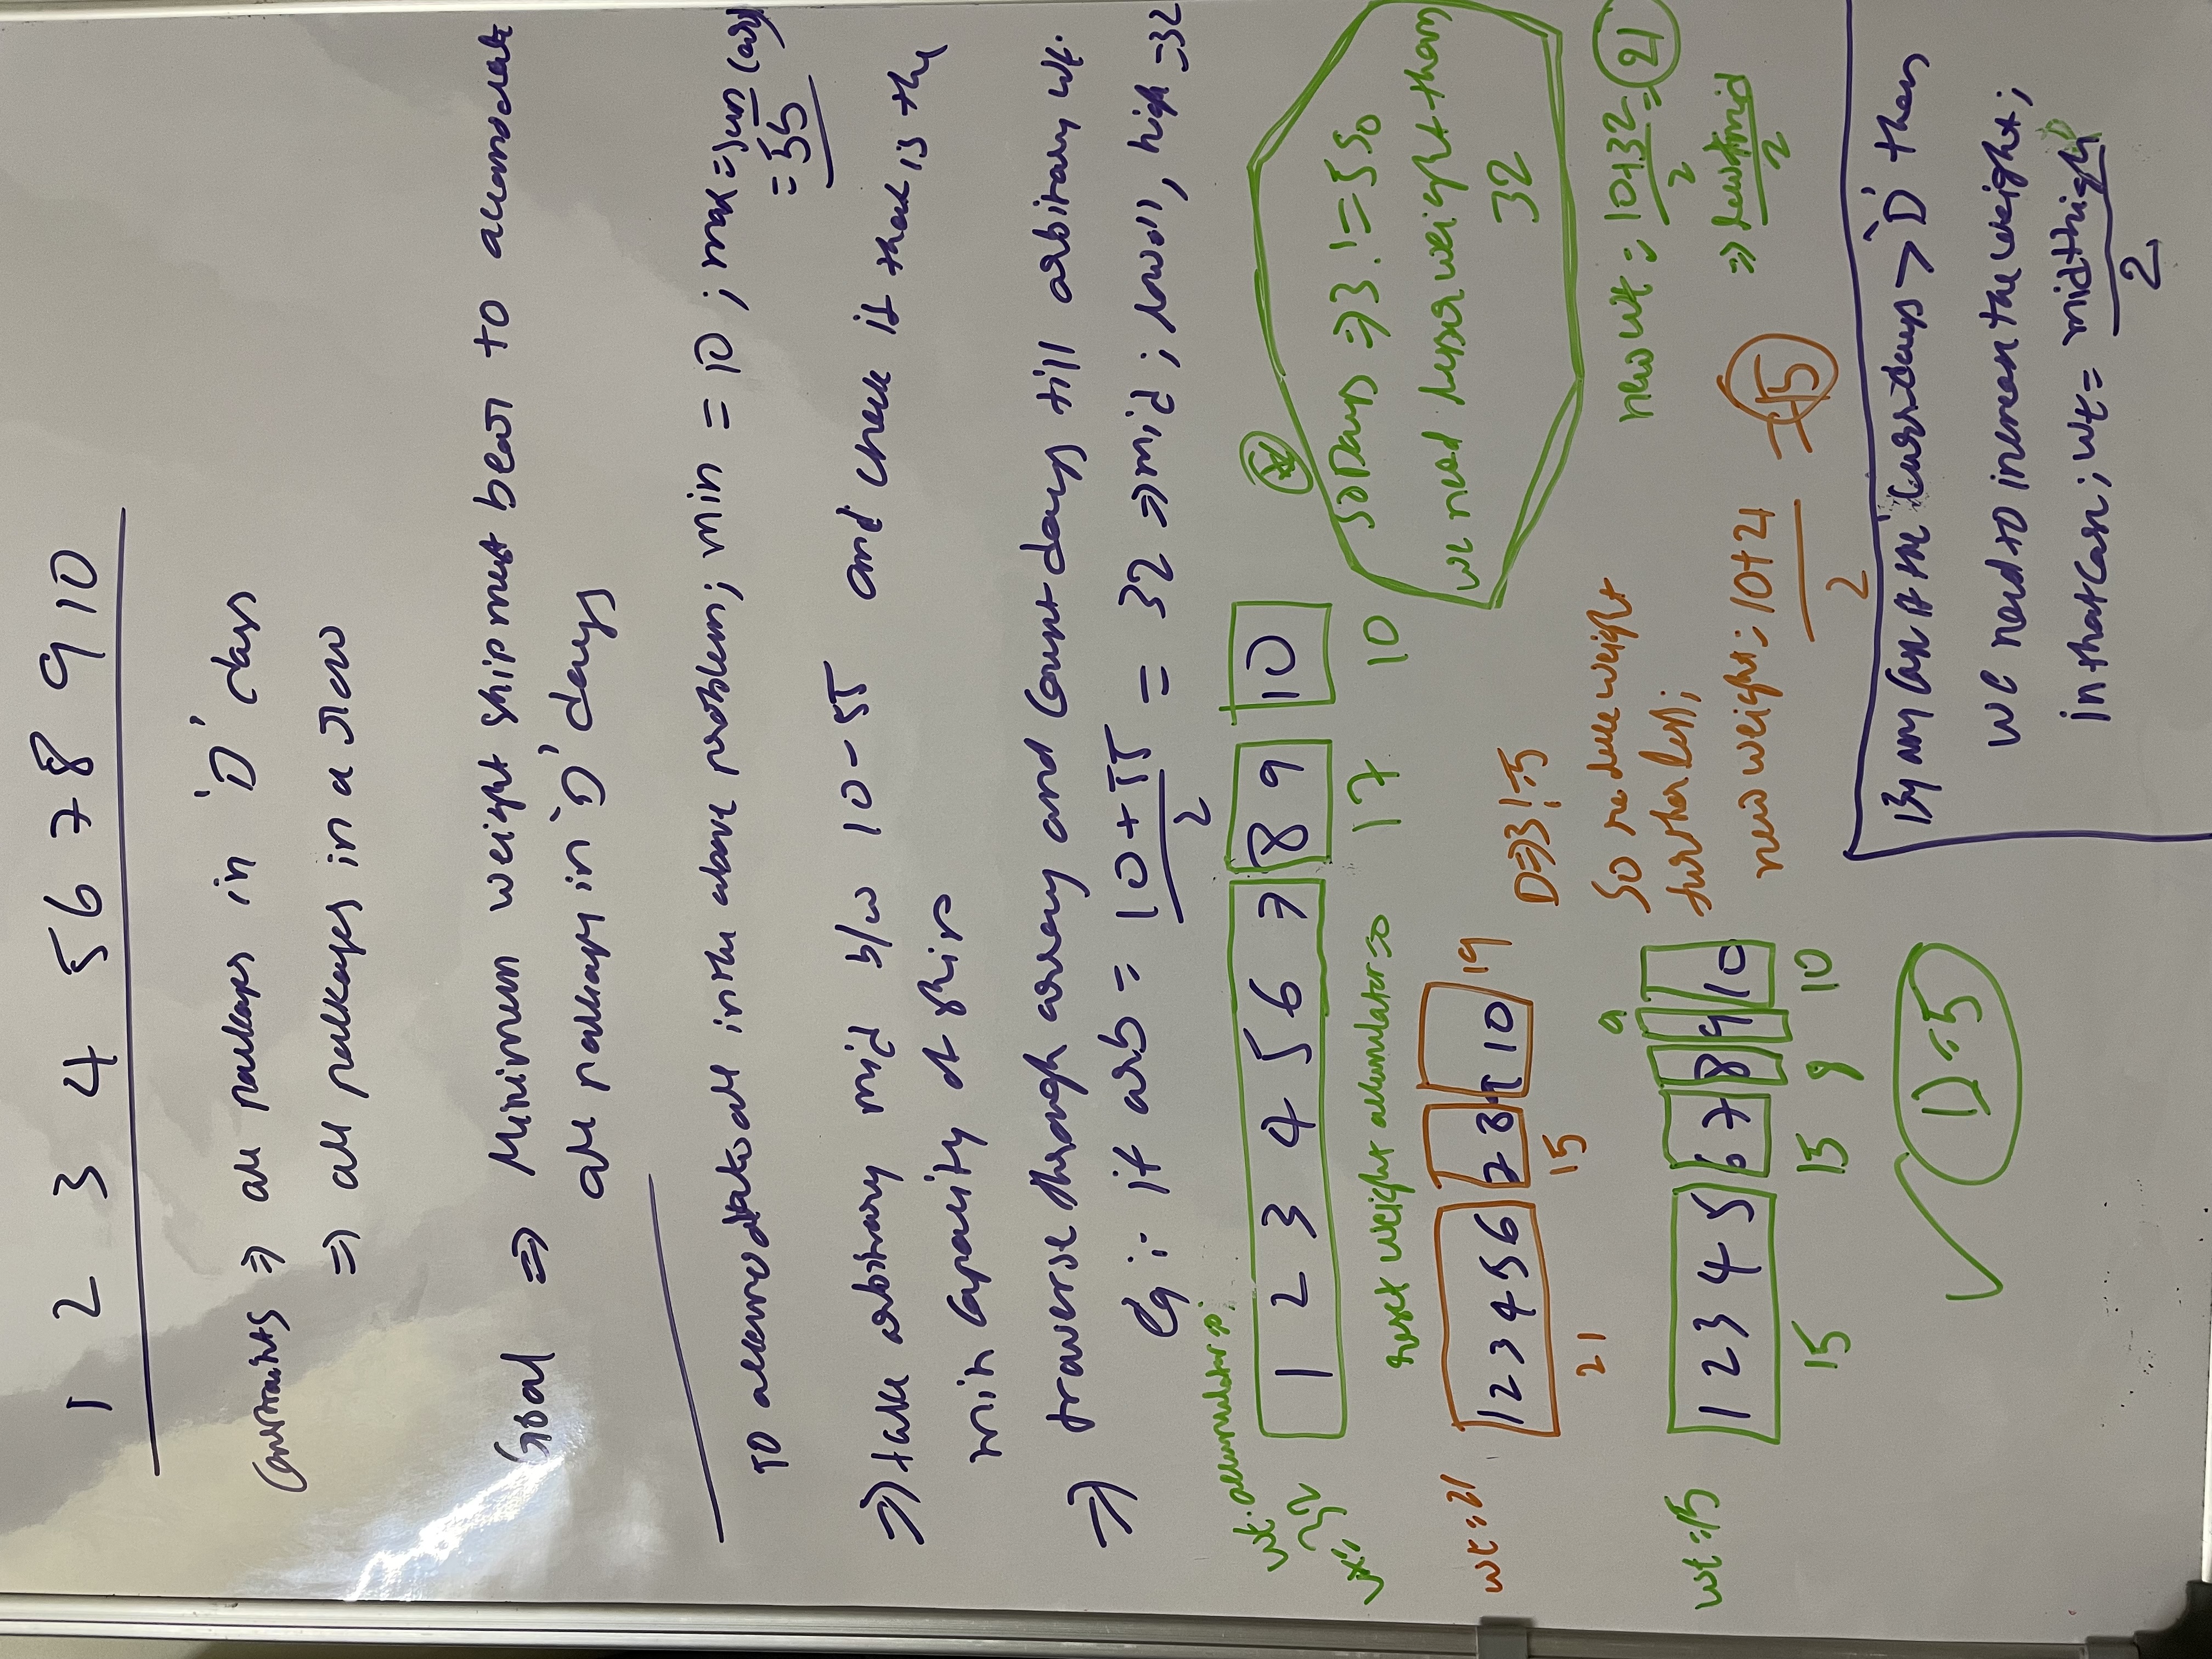 1 2 3 4 5 6 7 8 9 10
Constraints ⇒ all packages in 'D' days
⇒ all packages in a row
Goal ⇒ Minimum weight ship must bear to accomodate
all packages in 'D' days
To accomodate all in the above problem; min = 10; max = sum (arr)
= 55
⇒ take arbitrary mid b/w 10-55 and check if that is the
min capacity of ship
⇒ traverse through array and count days till arbitrary wt.
Eg:- if arb = 10+55 / 2 = 32 ⇒ mid; low=11, high=32
wt. accumulator=0;
wt=32
1 2 3 4 5 6 7 8 9 10
reset weight accumulator=0 17 10
So Days ⇒ 3 != 5 so
we need lesser weight than
32
wt=21
1 2 3 4 5 6 7 8 9 10 19
21 15
D⇒3!=5
So reduce weight
further less;
new weight = 10+21 / 2 = 15
new wt = 10+32 / 2 = 21
⇒ low+mid / 2
wt=15
9
1 2 3 4 5 6 7 8 9 10
15 13 8 10
D=5
By any case if the 'curr days > 'D' then
we need to increase the weight;
in that case; wt = mid+high / 2